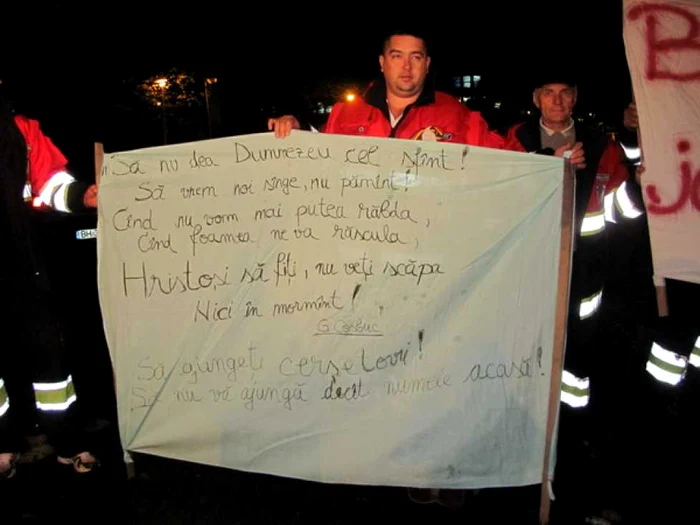 Să nu dea Dumnezeu cel sfînt!
Să vrem noi sînge, nu pămînt!
Cînd nu vom mai putea răbda,
Cînd foamea ne va răscula,
Hristoși să fiți, nu veți scăpa
Nici în mormînt!
G Coșbuc
Să ajungeți cerșetori!
Să nu vă ajungă decît numele acasă!
B
jo
BH